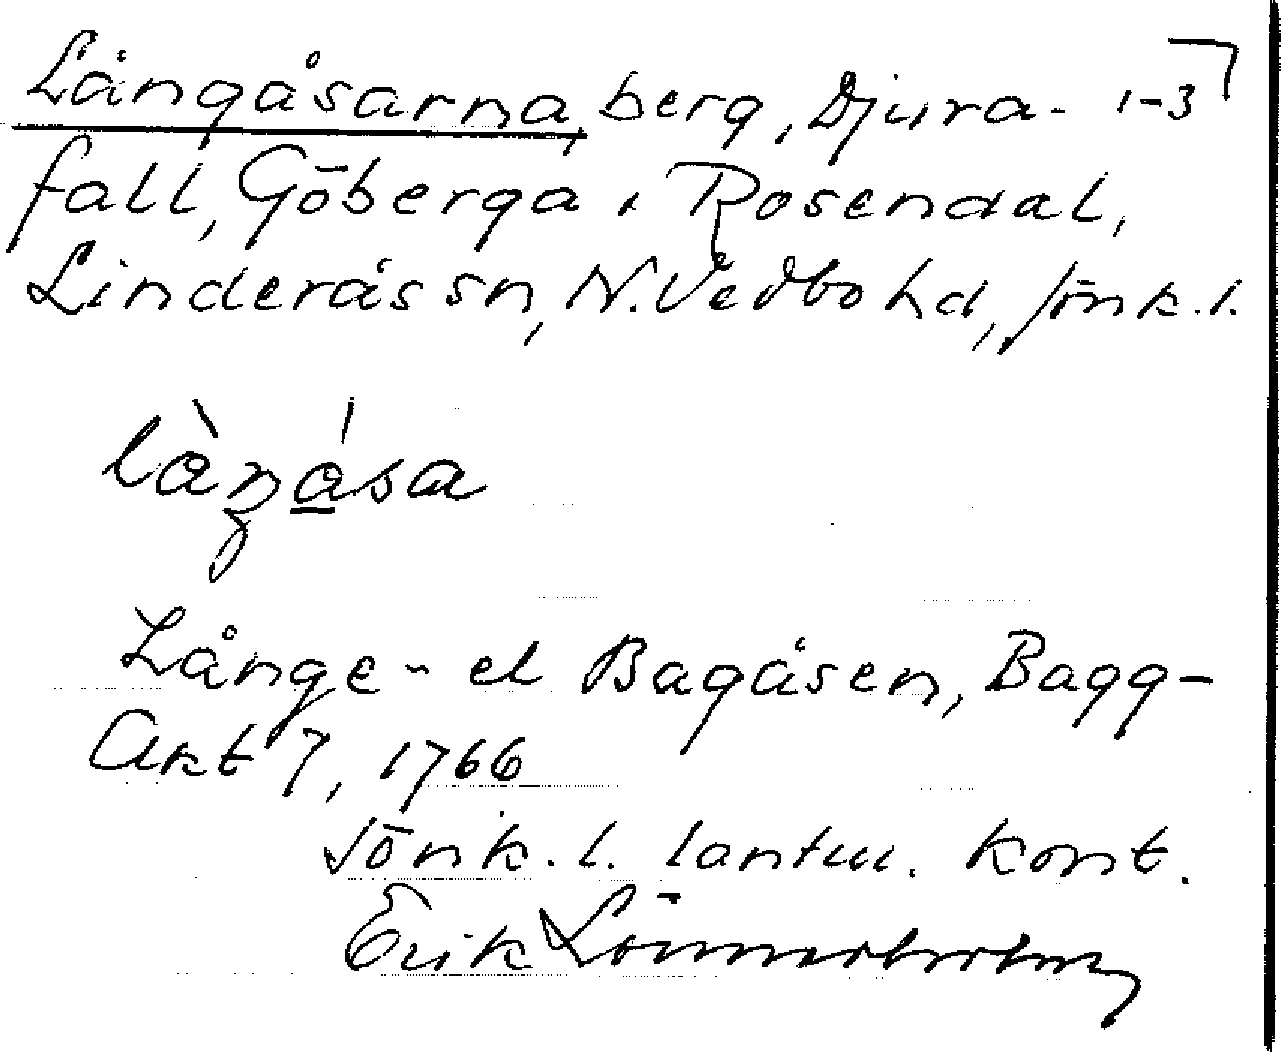 Långåsarna, berg, Djura- 1-3
fall, Göberga, Rosendal,
Linderås sn, N. Vedbo hd, Jönk. l.
làŋåsa
Långe- el Bagåsen, Bagg-
Akt 7, 1766
Jönk. l. lantm. kont.
Erik Lönnerholm